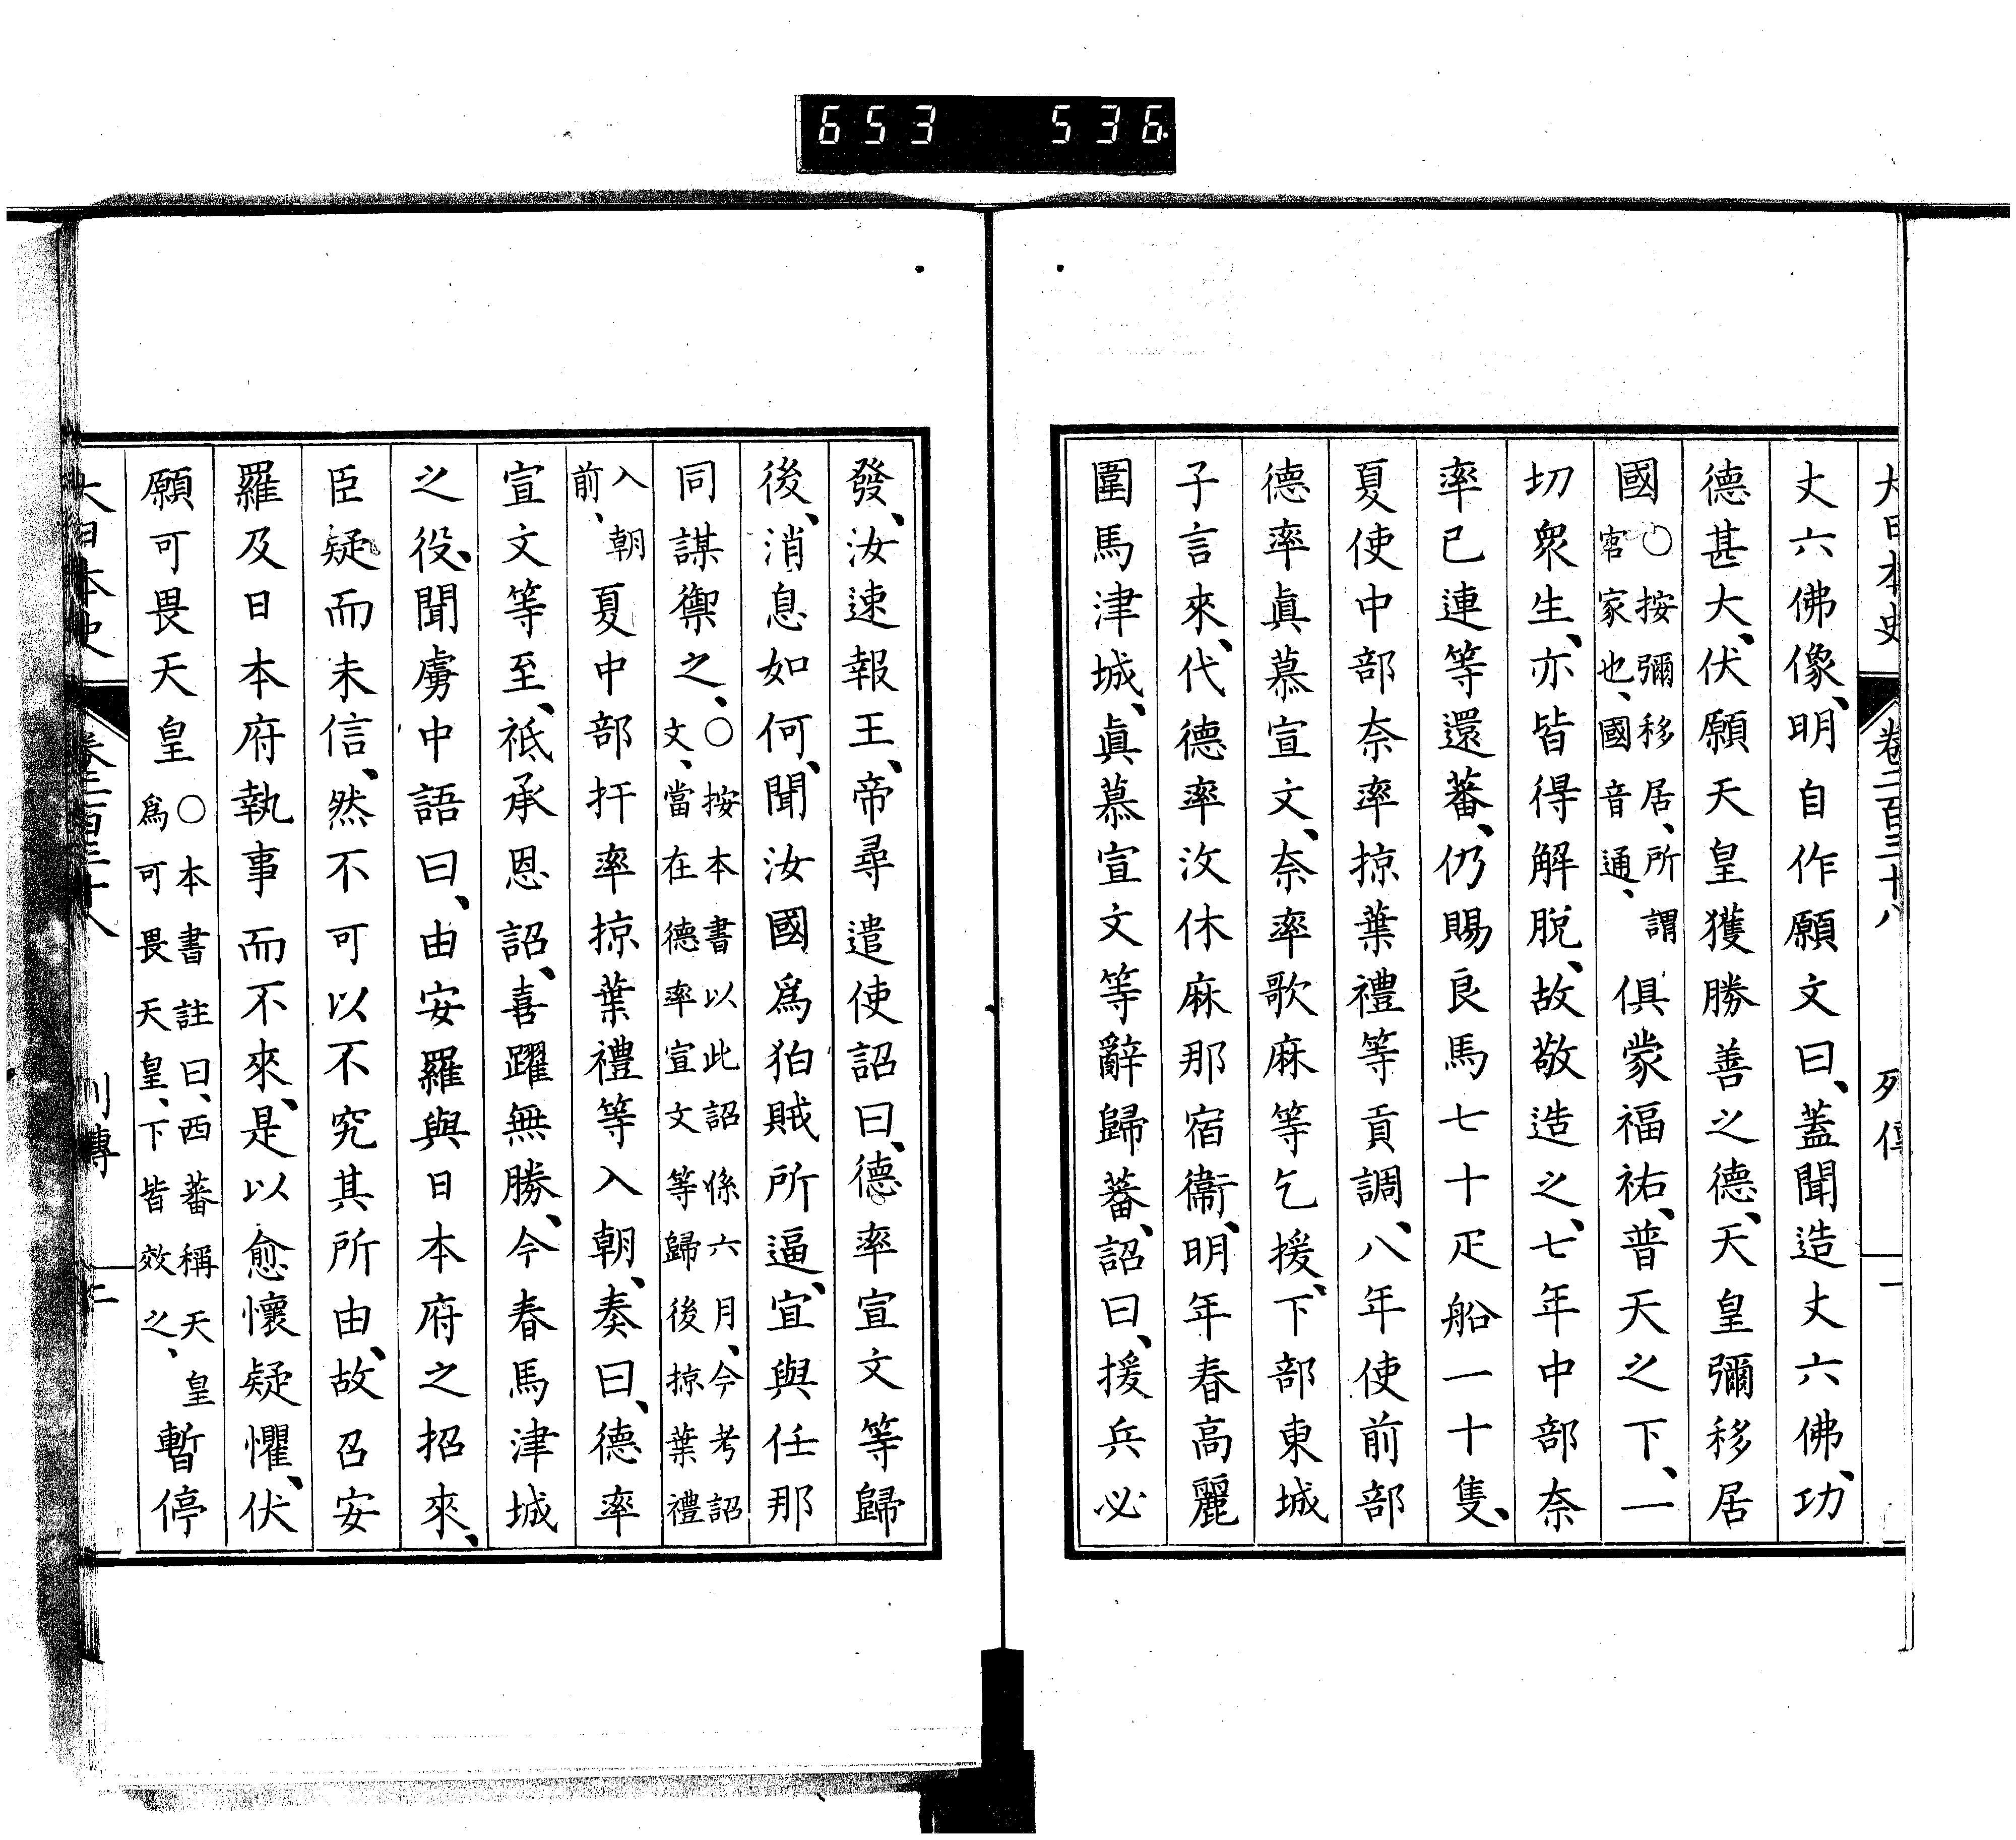 653 536
大日本史 卷二百三十八 列傳 一
丈六佛像、明自作願文曰、蓋聞造丈六佛、功
德甚大、伏願天皇獲勝善之德、天皇彌移居
國○按彌移居、所謂官家也、國音通、俱蒙福祐、普天之下、一
切衆生、亦皆得解脫、故敬造之、七年中部奈
率已連等還蕃、仍賜良馬七十疋船一十隻、
夏使中部奈率掠葉禮等貢調、八年使前部
德率眞慕宣文、奈率歌麻等乞援、下部東城
子言來、代德率汶休麻那宿衞、明年春高麗
圍馬津城、眞慕宣文等辭歸蕃、詔曰、援兵必
發、汝速報王、帝尋遣使詔曰、德率宣文等歸
後、消息如何、聞汝國爲狛賊所逼、宜與任那
同謀禦之、○按本書以此詔係六月、今考詔文、當在德率宣文等歸後掠葉禮
入朝前、夏中部扞率掠葉禮等入朝、奏曰、德率
宣文等至、祗承恩詔、喜躍無勝、今春馬津城
之役、聞虜中語曰、由安羅與日本府之招來、
臣疑而未信、然不可以不究其所由、故召安
羅及日本府執事而不來、是以愈懷疑懼、伏
願可畏天皇○本書註曰、西蕃稱天皇爲可畏天皇、下皆效之、暫停
大日本史 卷二百三十八 列傳 二